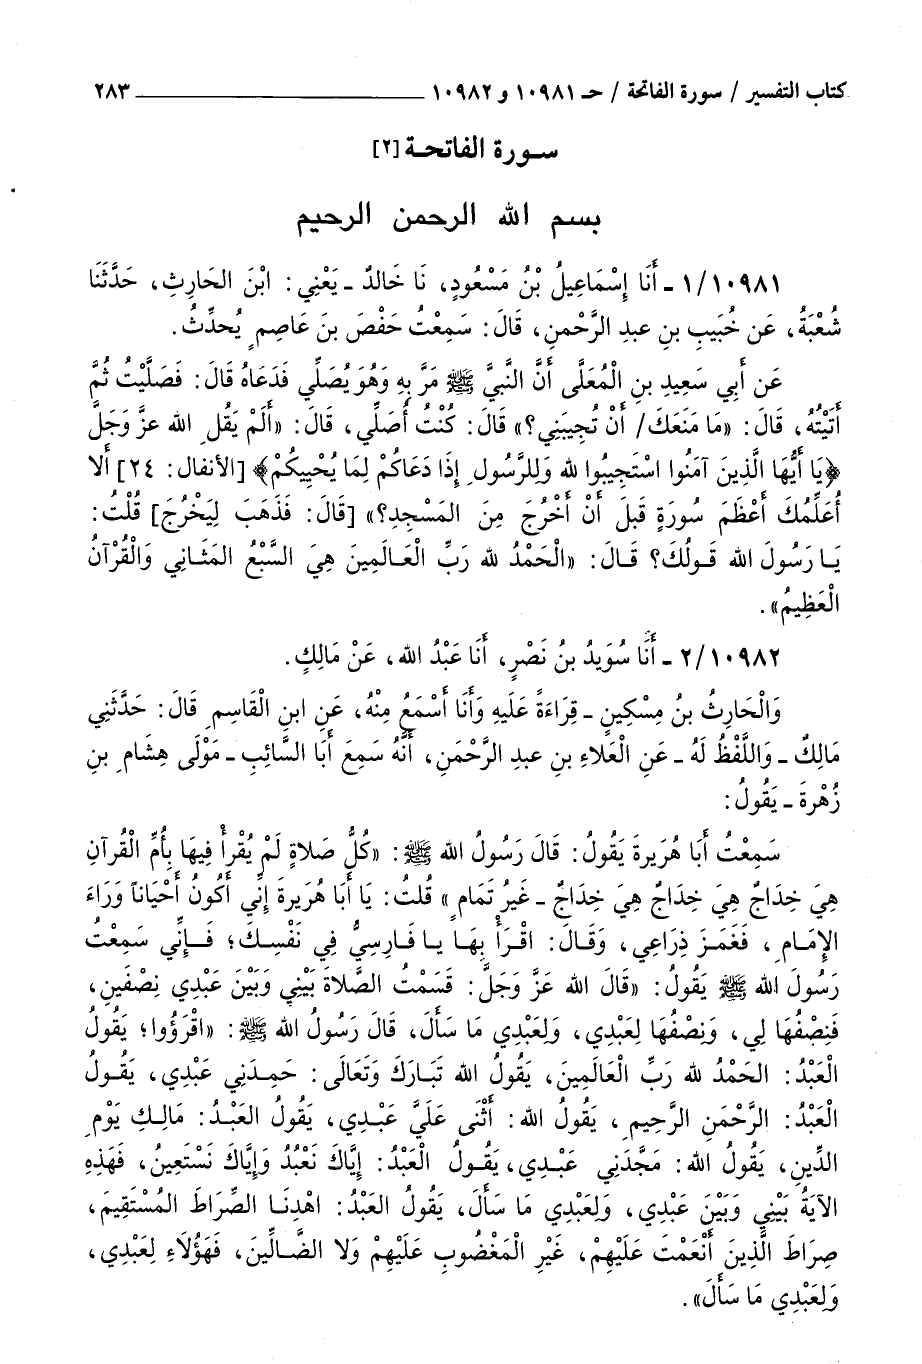 كتاب التفسير / سورة الفاتحة / حـ ١٠٩٨١ و ١٠٩٨٢ ــــــــــــــــــــ ٢٨٣
سـورة الفاتحـة [٢]
بسم الله الرحمن الرحيم
١/١٠٩٨١ ـ أَنَا إِسْمَاعِيلُ بْنُ مَسْعُودٍ، نَا خَالدٌ ـ يَعْنِي: ابْنَ الحَارِثِ، حَدَّثَنَا
شُعْبَةُ، عَن خُبَيبِ بنِ عبدِ الرَّحْمنِ، قَالَ: سَمِعْتُ حَفْصَ بنَ عَاصِمٍ يُحدِّثُ.
عَن أَبِي سَعِيدِ بنِ الْمُعَلَّى أَنَّ النَّبيَّ ﷺ مَرَّ بِهِ وَهُوَ يُصَلِّي فَدَعَاهُ قَالَ: فَصَلَّيْتُ ثُمَّ
أَتَيْتُهُ، قَالَ: «مَا مَنَعَكَ/ أَنْ تُجِيبَنِي؟» قَالَ: كُنْتُ أُصَلِّي، قَالَ: «أَلَمْ يَقُلِ الله عزَّ وَجَلَّ
﴿يَا أَيُّهَا الَّذِينَ آمَنُوا اسْتَجِيبُوا لله وَلِلرَّسُولِ إِذَا دَعَاكُمْ لِمَا يُحْيِيكُمْ﴾ [الأنفال: ٢٤] أَلا
أُعَلِّمُكَ أَعْظَمَ سُورَةٍ قَبلَ أَنْ أَخْرُجَ مِنَ المَسْجِدِ؟» [قَالَ: فَذَهَبَ لِيَخْرُجَ] قُلْتُ:
يَـا رَسُولَ الله قَـولُكَ؟ قَـالَ: «الْحَمْدُ لله رَبِّ الْعَالَمِينَ هِيَ السَّبْعُ المَثَـانِي وَالْقُرْآنُ
الْعَظِيمُ».
٢/١٠٩٨٢ ـ أَنَا سُوَيدُ بنُ نَصْرٍ، أَنَا عَبْدُ الله، عَنْ مَالِكٍ.
وَالْحَارِثُ بنُ مِسْكِينٍ ـ قِرَاءَةً عَلَيهِ وَأَنَا أَسْمَعُ مِنْهُ، عَنِ ابنِ الْقَاسِمِ قَالَ: حَدَّثَنِي
مَالِكٌ ـ وَاللَّفْظُ لَهُ ـ عَنِ الْعَلاءِ بنِ عبدِ الرَّحْمَنِ، أَنَّهُ سَمِعَ أَبَا السَّائِبِ ـ مَوْلَى هِشَامِ بنِ
زُهْرةَ ـ يَقُولُ:
سَمِعْتُ أَبَا هُرَيرةَ يَقُولُ: قَالَ رَسُولُ الله ﷺ: «كُلُّ صَلاةٍ لَمْ يُقْرأْ فِيهَا بِأُمِّ الْقُرآنِ
هِيَ خِدَاجٌ هِيَ خِدَاجٌ هِيَ خِدَاجٌ ـ غَيرُ تَمَامٍ» قُلتُ: يَا أَبَا هُرَيرةَ إِنِّي أَكُونُ أَحْيَاناً وَرَاءَ
الإِمَامِ، فَغَمَـزَ ذِرَاعِي، وَقَـالَ: اقْـرَأْ بِهَـا يـا فَـارِسِيُّ فِي نَفْسِـكَ؛ فَـإِنِّي سَمِعْتُ
رَسُولَ الله ﷺ يَقُولُ: «قَالَ الله عَزَّ وَجَلَّ: قَسَمْتُ الصَّلاةَ بَيْنِي وَبَيْنَ عَبْدِي نِصْفَينِ،
فَنِصْفُهَا لِي، وَنِصْفُهَا لِعَبْدِي، وَلِعَبْدِي مَا سَأَلَ، قَالَ رَسُولُ الله ﷺ: «اقْرَؤُوا؛ يَقُولُ
الْعَبْدُ: الحَمْدُ لله رَبِّ الْعَالَمِينَ، يَقُولُ الله تَبَارَكَ وَتَعَالَى: حَمِـدَنِي عَبْدِي، يَقُـولُ
الْعَبْدُ: الرَّحْمَنِ الرَّحِيمِ، يَقُولُ الله: أَثْنَى عَلَيَّ عَبْـدِي، يَقُولُ العَبْـدُ: مَالِـكِ يَوْمِ
الدِّينِ، يَقُولُ الله: مَجَّدَنِي عَبْـدِي، يَقُـولُ الْعَبْدُ: إِيَّاكَ نَعْبُدُ وَإِيَّاكَ نَسْتَعِينُ، فَهَذِهِ
الآيَةُ بَيْنِي وَبَيْنَ عَبْدِي، وَلِعَبْدِي مَا سَأَلَ، يَقُولُ العَبْدُ: اهْدِنَـا الصِّرَاطَ المُسْتَقِيمَ،
صِرَاطَ الَّذِينَ أَنْعَمْتَ عَلَيْهِمْ، غَيْرِ الْمَغْضُوبِ عَلَيْهِمْ وَلا الضَّـالِّينَ، فَهَؤُلَاءِ لِعَبْدِي،
وَلِعَبْدِي مَا سَأَلَ».